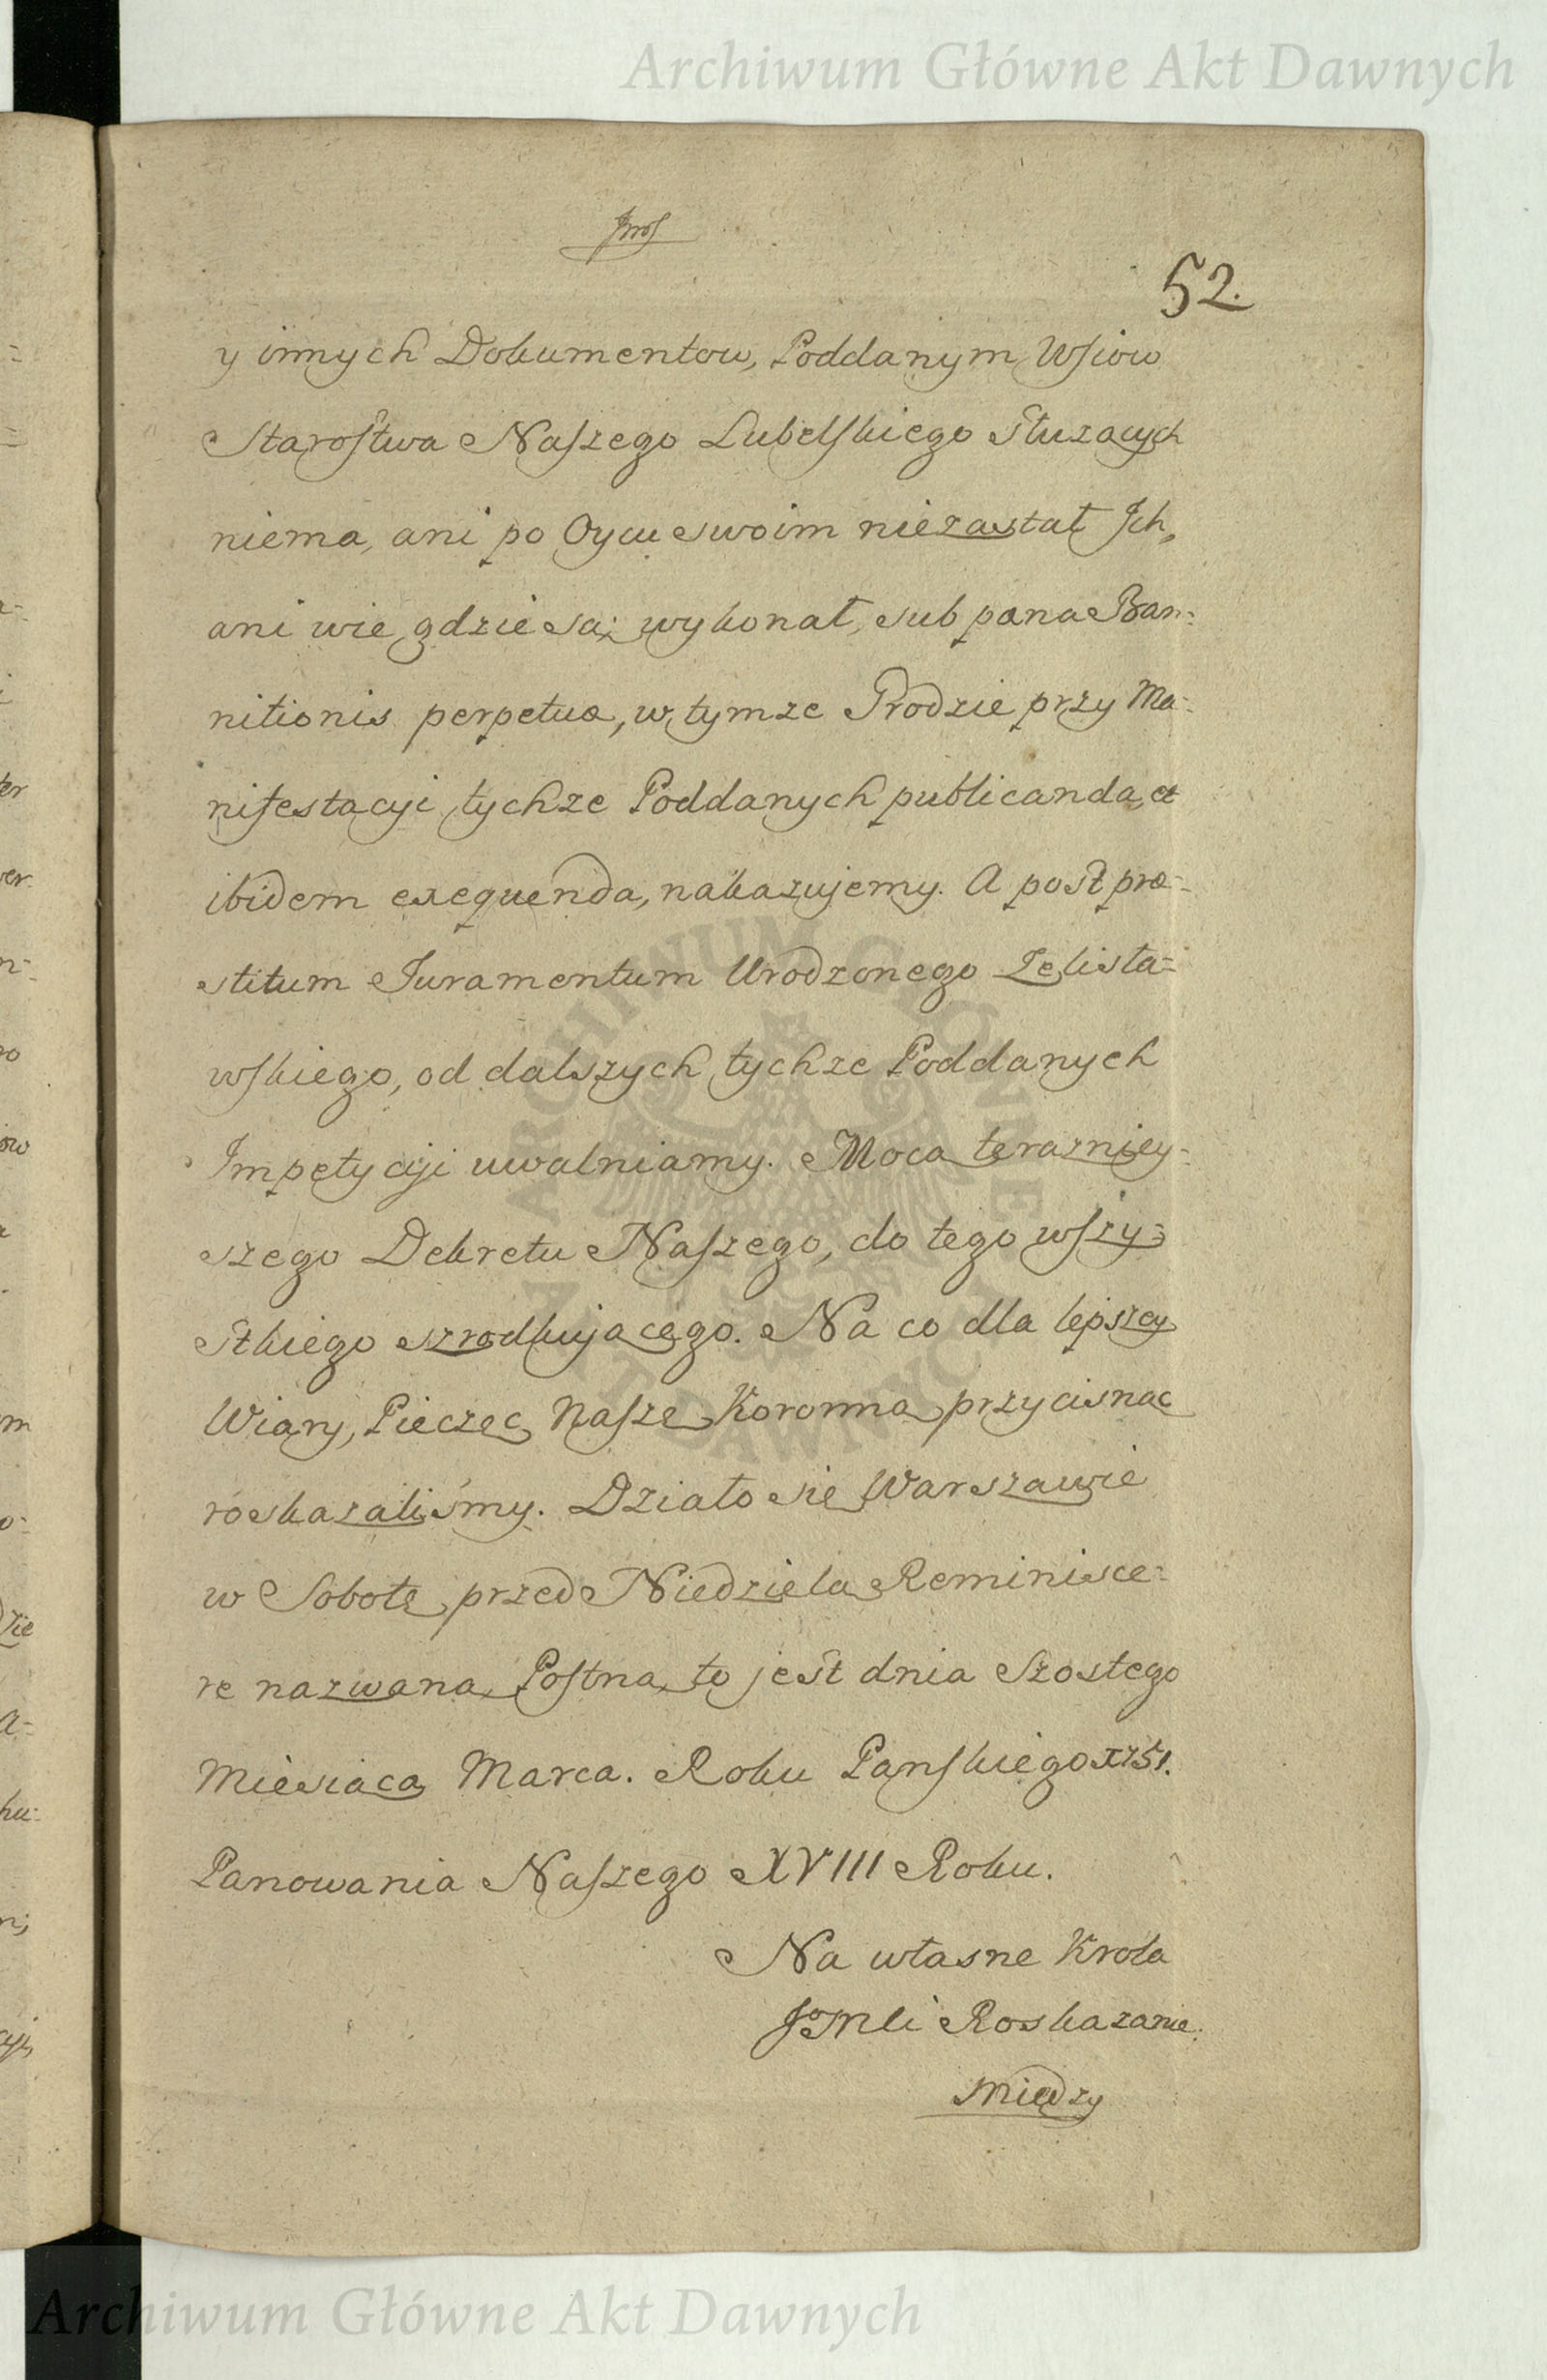 Archiwum Główne Akt Dawnych
52.
y innych Dokumentow, Poddanym Wsiow
Starostwa Naszego Lubelskiego Słuzących
niema, ani po Oycu swoim niezastał Ich,
ani wie gdzie są; wykonał, sub pœna Ban=
nitionis perpetuæ, w tymze Grodzie przy Ma=
nifestacyi tychze Poddanych publicanda, et
ibidem exequenda, nakazujemy. A post præ=
stitum Juramentum Urodzonego
wskiego, od dalszych tychze Poddanych
Impetycyi uwalniamy. Mocą teraznięy=
szego Dekretu Naszego, do tego wszy=
stkiego szrodkującego. Na co dla lepszey
Wiary, Pieczęc Naszę Koronną przycisnąc
roskazaliśmy. Działo się w Warszawie
w Sobotę przed Niedzielą Reminisce=
re nazwaną Postną, to jest dnia Szostego
Miesiąca Marca. Roku Panskiego 1751.
Panowania Naszego XVIII Roku.
Na własne Krola
JoMci Roskazanie.
Między
ARCHIWUM GŁÓWNE
AKT DAWNYCH
Archiwum Główne Akt Dawnych